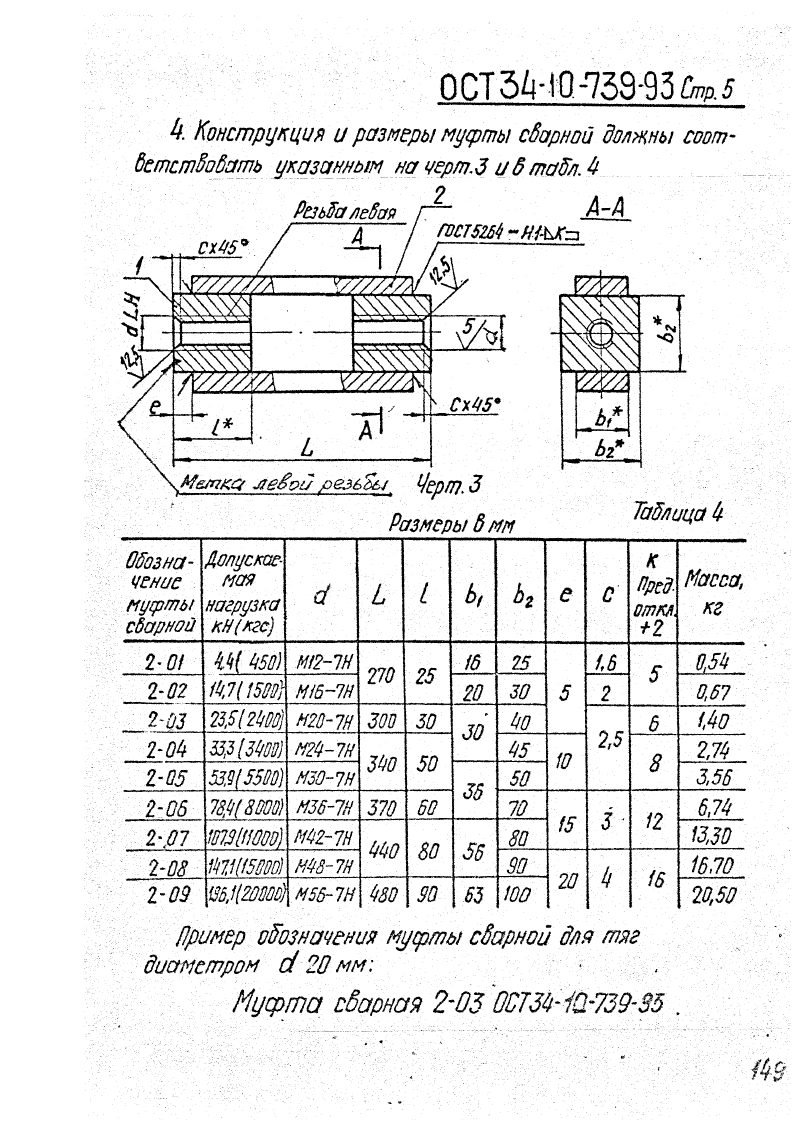 ОСТ 34-10-739-93 Стр. 5
4. Конструкция и размеры муфты сварной должны соот-
ветствовать указанным на черт.3 и в табл. 4
2
А-А
Резьба левая
А
ГОСТ 5264-Н1-⊿К⊐
c×45°
1
12,5
d LH
5
d
b₂*
12,5
e
l*
А
c×45°
b₁*
L
b₂*
Метка левой резьбы
Черт. 3
Таблица 4
Размеры в мм
Обозна-
чение
муфты
сварной
Допускае-
мая
нагрузка
кН (кгс)
d
L
l
b₁
b₂
e
c
К
Пред.
откл.
+2
Масса,
кг
2-01 4,4( 450) М12-7Н 270 25 16 25 5 1,6 5 0,54
2-02 14,7(1500) М16-7Н 20 30 2 0,67
2-03 23,5(2400) М20-7Н 300 30 30 40 2,5 6 1,40
2-04 33,3(3400) М24-7Н 340 50 45 10 8 2,74
2-05 53,9(5500) М30-7Н 36 50 3,56
2-06 78,4(8000) М36-7Н 370 60 70 15 3 12 6,74
2-07 107,9(11000) М42-7Н 440 80 56 80 13,30
2-08 147,1(15000) М48-7Н 90 20 4 16 16,70
2-09 196,1(20000) М56-7Н 480 90 63 100 20,50
Пример обозначения муфты сварной для тяг
диаметром d 20 мм:
Муфта сварная 2-03 ОСТ34-10-739-93.
149